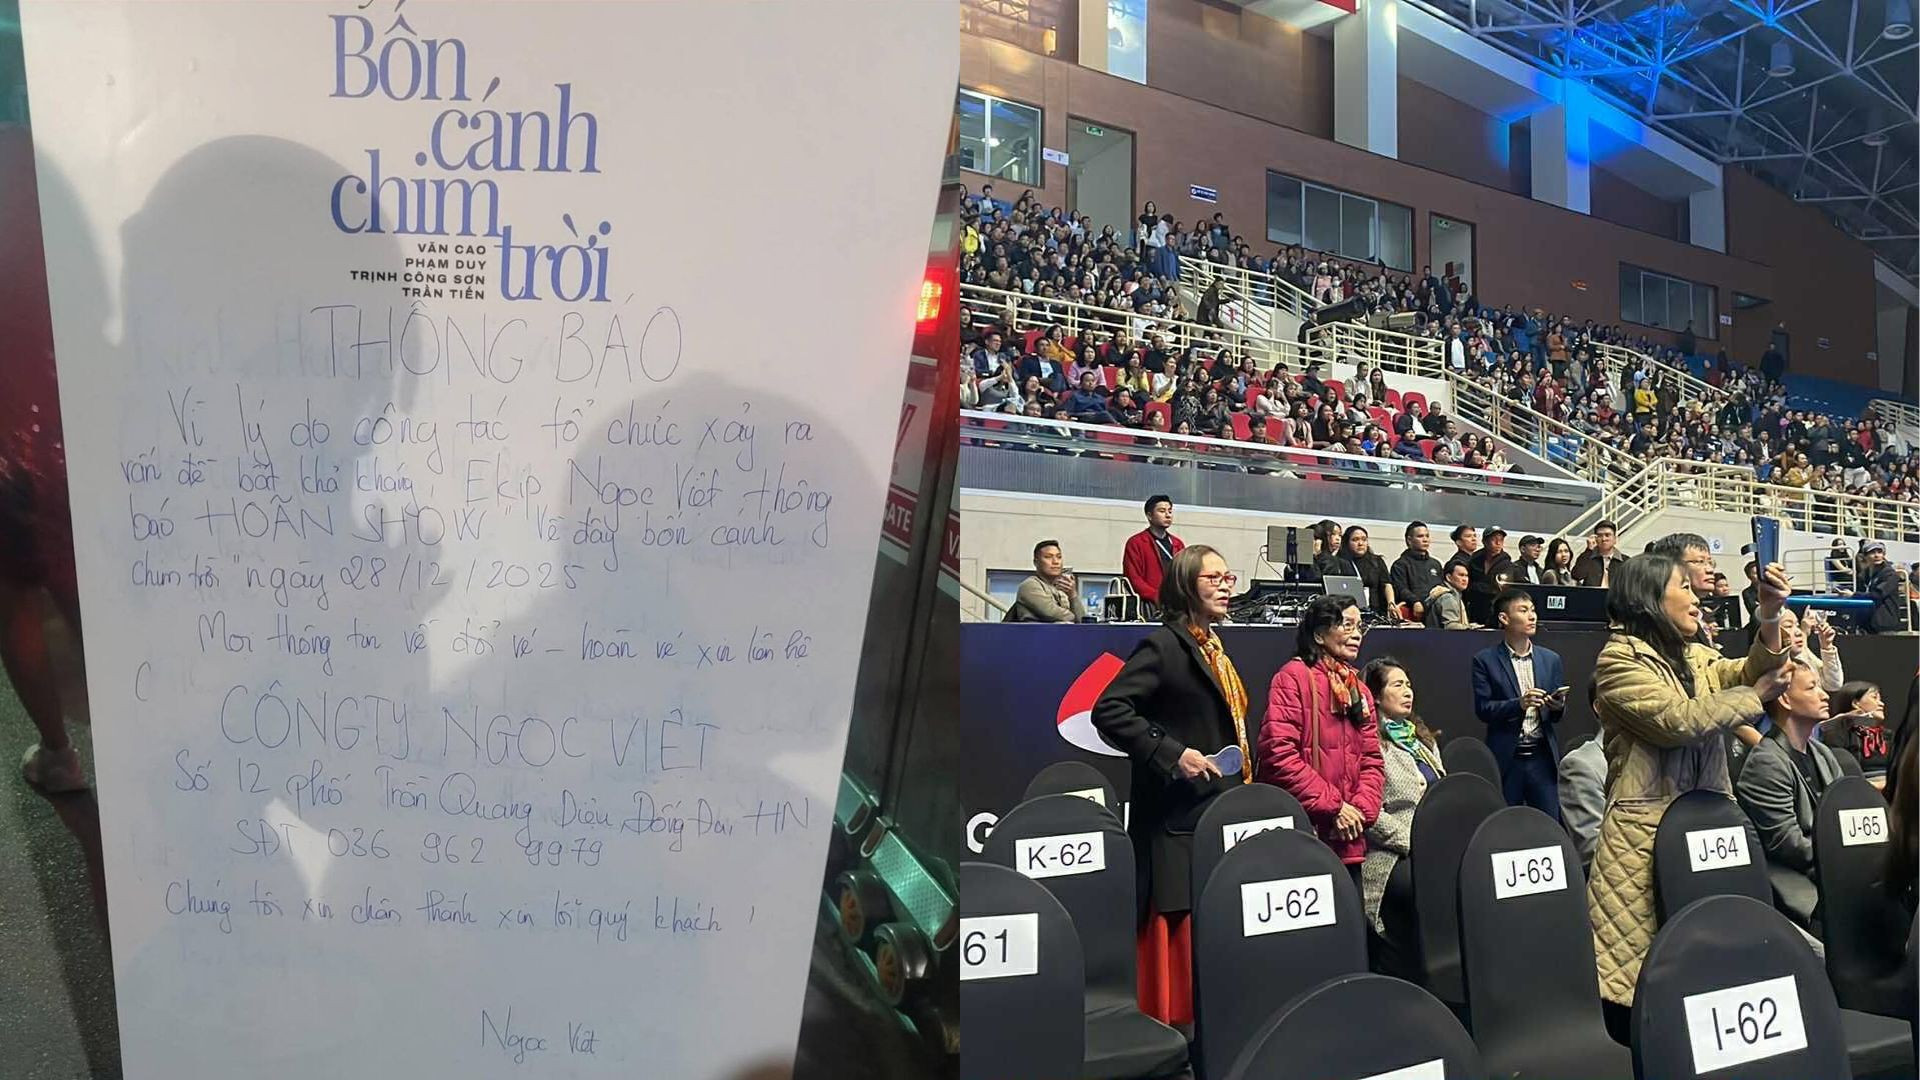 Bốn
cánh
chim
trời
VĂN CAO
PHẠM DUY
TRỊNH CÔNG SƠN
TRẦN TIẾN
THÔNG BÁO
Vì lý do công tác tổ chức xảy ra
vấn đề bất khả kháng, Ekip Ngọc Việt thông
báo HOÃN SHOW "Về đây bốn cánh
chim trời" ngày 28/12/2025
Mọi thông tin về đổi vé - hoàn vé xin liên hệ
CÔNG TY NGỌC VIỆT
Số 12 phố Trần Quang Diệu, Đống Đa, HN
SĐT 036 962 9979
Chúng tôi xin chân thành xin lỗi quý khách!
Ngọc Việt
MA
K-62
J-62
J-63
J-64
J-65
61
I-62